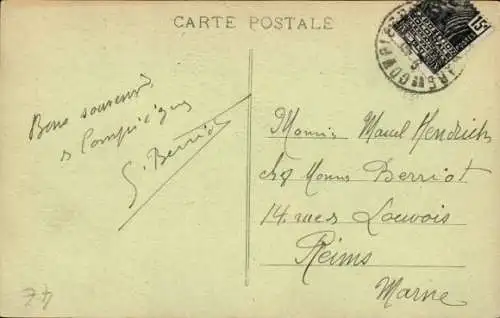 CARTE POSTALE
15c
Bons souvenirs
de Compiègne
G. Berriot
Monsieur Marcel Hendrickx
chez Monsieur Berriot
14 rue Louvois
Reims
Marne